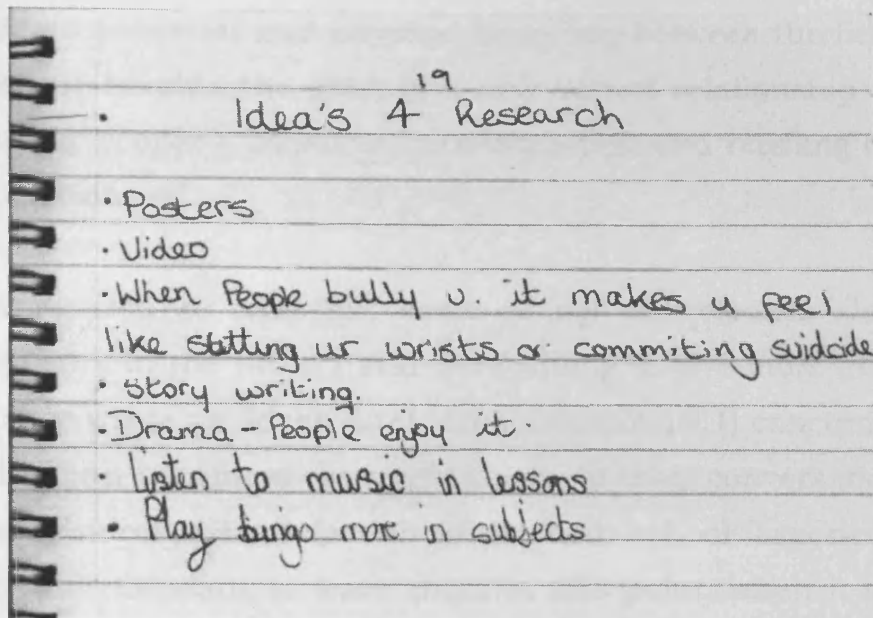 19
Idea's 4 Research
• Posters
• Video
• When People bully u. it makes u feel
like slitting ur wrists or commiting suidcide
• Story writing.
• Drama - People enjoy it.
• Listen to music in lessons
• Play bingo more in subjects